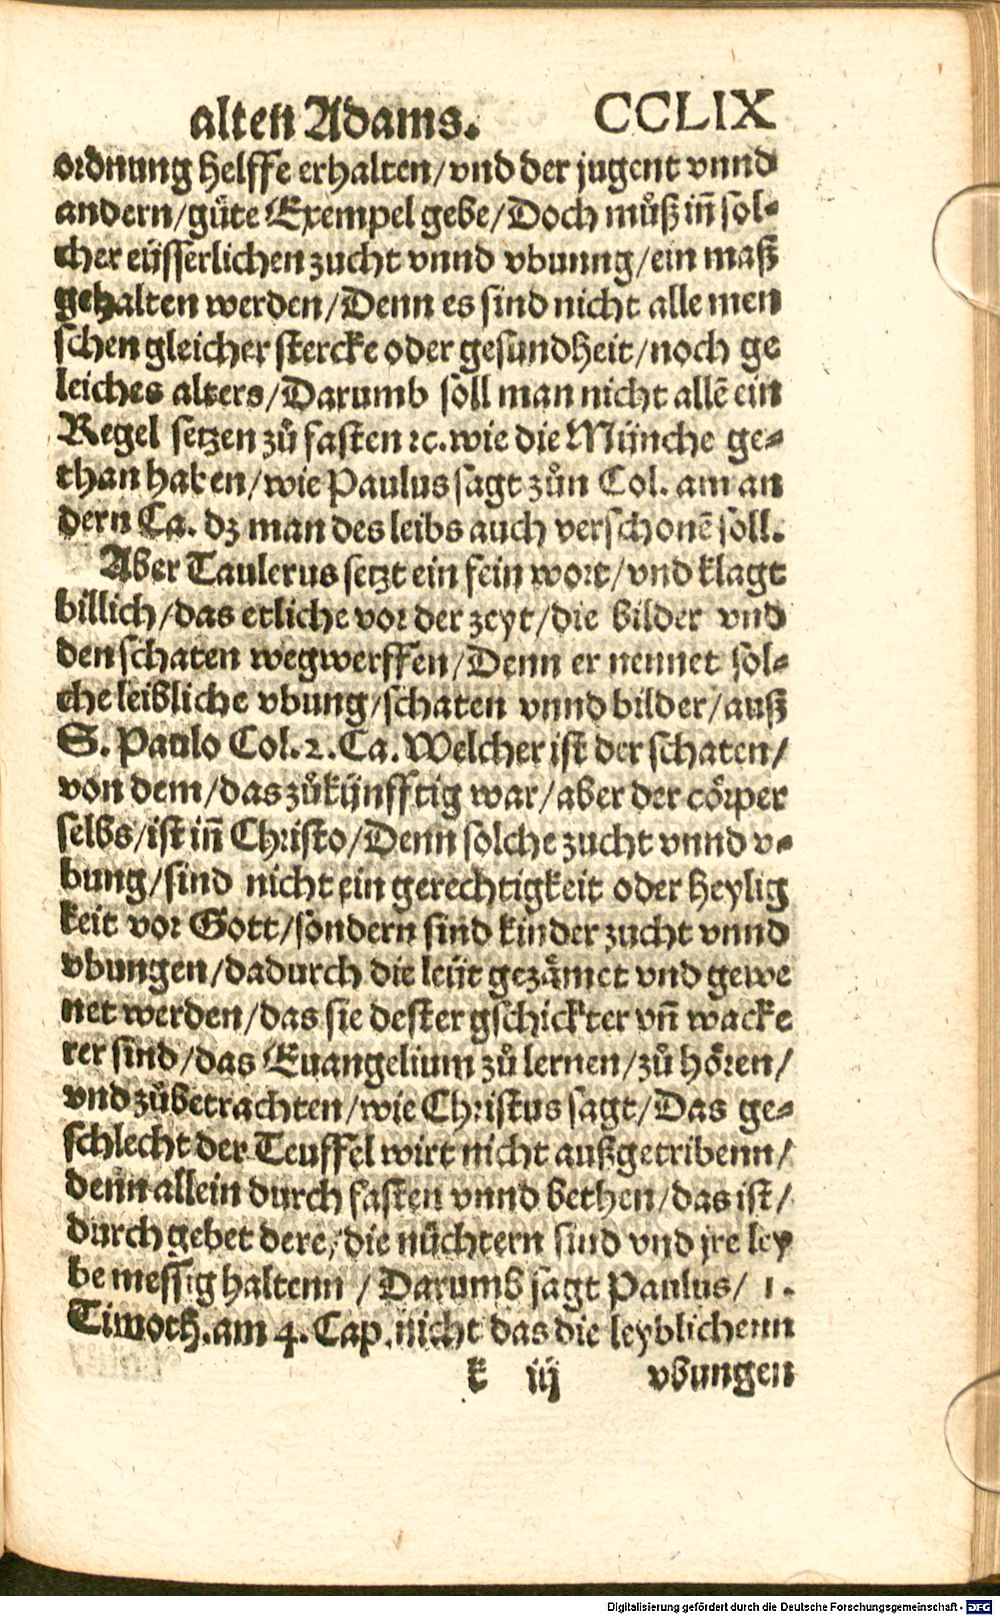 alten Adams. CCLIX
ordnung helffe erhalten/ vnd der jugent vnnd
andern/ gůte Exempel gebe/ Doch můß iñ sol-
cher eüsserlichen zucht vnnd vbunng/ ein maß
gehalten werden/ Denn es sind nicht alle men
schen gleicher stercke oder gesundheit/ noch ge
leiches alters/ Darumb soll man nicht allē ein
Regel setzen zů fasten ꝛc. wie die Münche ge-
than haben/ wie Paulus sagt zůn Col. am an
dern Ca. dz man des leibs auch verschonē soll.
Aber Taulerus setzt ein fein wort/ vnd klagt
billich/ das etliche vor der zeyt/ die bilder vnd
den schaten wegwerffen/ Denn er nennet sol-
che leibliche vbung/ schaten vnnd bilder/ auß
S. Paulo Col. 2. Ca. Welcher ist der schaten/
von dem/ das zůkünfftig war/ aber der cörper
selbs/ ist iñ Christo/ Denn solche zucht vnnd v-
bung/ sind nicht ein gerechtigkeit oder heylig
keit vor Gott/ sondern sind kinder zucht vnnd
vbungen/ dadurch die leüt gezämet vnd gewe
net werden/ das sie dester gschickter vñ wacke
rer sind/ das Euangelium zů lernen/ zů hören/
vnd zůbetrachten/ wie Christus sagt/ Das ge-
schlecht der Teuffel wirt nicht außgetribenn/
denn allein durch fasten vnnd bethen/ das ist/
durch gebet dere/ die nüchtern sind vnd jre ley
be messig haltenn / Darumb sagt Paulus/ 1.
Timoth. am 4. Cap. nicht das die leyblichenn
k iij vbungen
Digitalisierung gefördert durch die Deutsche Forschungsgemeinschaft - DFG